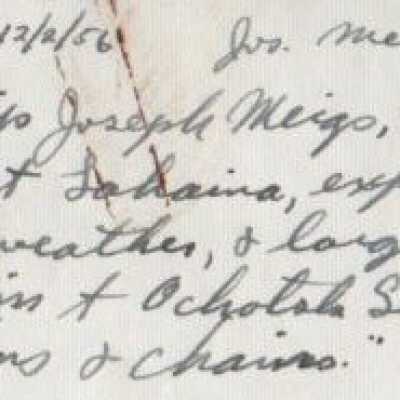 12/2/56 Jos. Me
Joseph Meigs,
t Lahaina, exp
weather, & larg
iss & Ochotsk S
ns & chains."